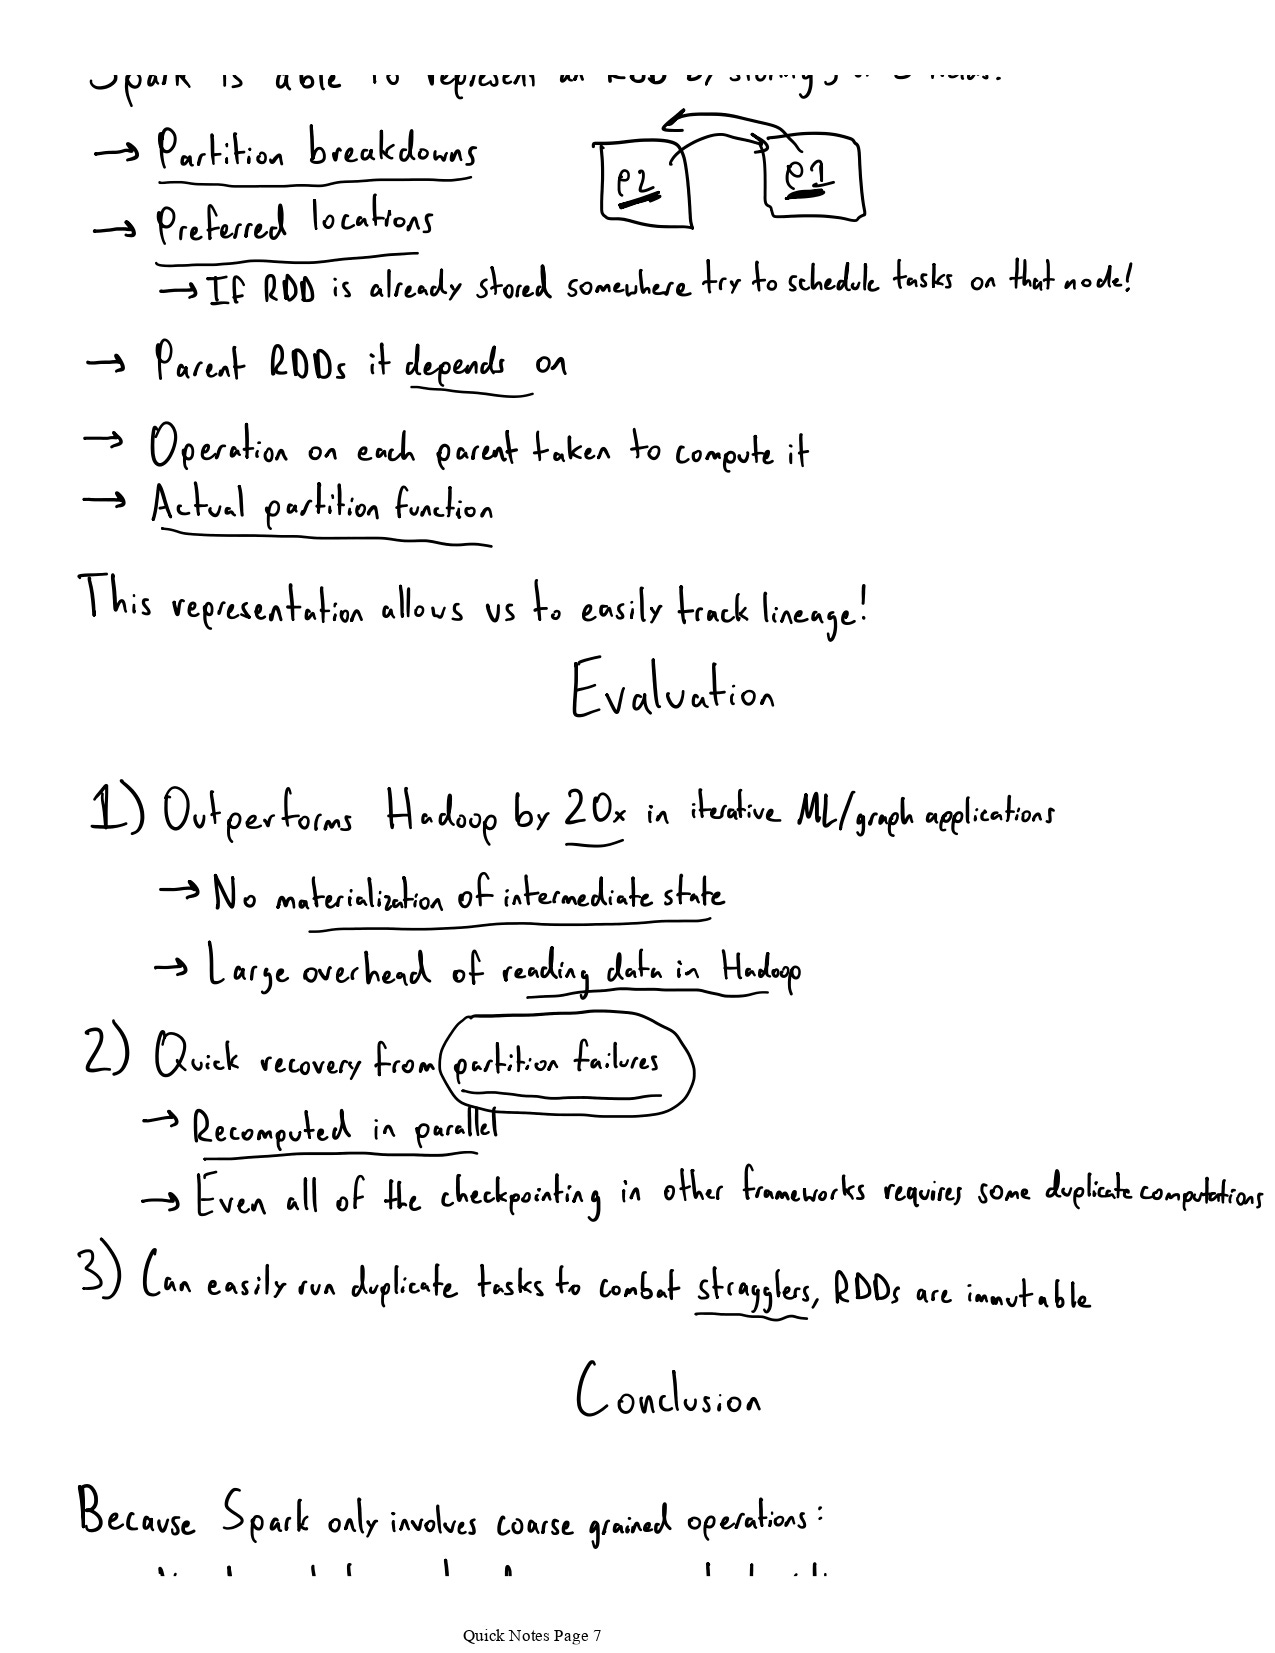 Spark is able to represent an RDD by storing
→ Partition breakdowns
P2
P1
→ Preferred locations
→ If RDD is already stored somewhere try to schedule tasks on that node!
→ Parent RDDs it depends on
→ Operation on each parent taken to compute it
→ Actual partition function
This representation allows us to easily track lineage!
Evaluation
1) Outperforms Hadoop by 20x in iterative ML/graph applications
→ No materialization of intermediate state
→ Large overhead of reading data in Hadoop
2) Quick recovery from partition failures
→ Recomputed in parallel
→ Even all of the checkpointing in other frameworks requires some duplicate computations
3) Can easily run duplicate tasks to combat stragglers, RDDs are immutable
Conclusion
Because Spark only involves coarse grained operations:
Quick Notes Page 7